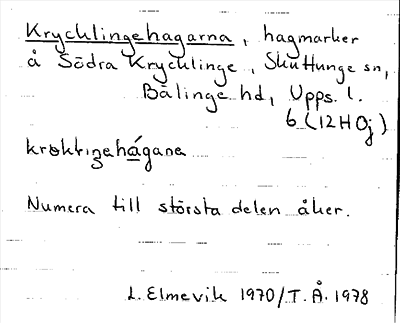 Krycklingehagarna, hagmarker
å Södra Krycklinge, Skuttunge sn,
Bälinge hd, Upps. l.
6 (12H 0j)
Numera till största delen åker.
L. Elmevik 1970/T.Å. 1978